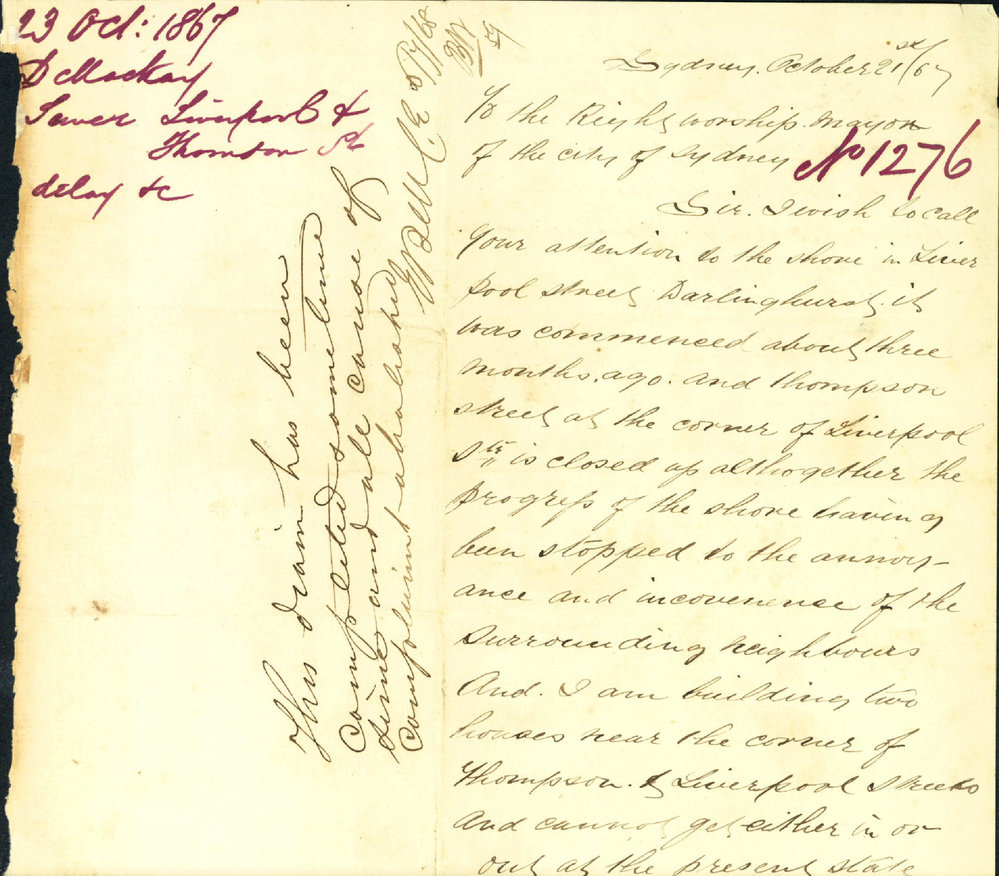 23 Oct: 1867
D Mackay
Sewer Liverpool &
Thomson St
delay &c
This drain has been
Completed some time
since and all cause of
Complaint
Sydney. October 21st/67
To the Right worship. Mayor
of the city of Sydney
No 1276
Sir. I wish to call
your attention to the shore in Liver
pool street Darlinghurst. it
was commenced about three
months. ago. and thompson
street at the corner of Liverpool
Str is closed up althogether the
progress of the shore having
been stopped to the annoy-
ance and incovenence of the
surrounding neighbours
And. I am building two
houses near the corner of
Thompson. & Liverpool Streets
And cannot get either in or
out at the present state